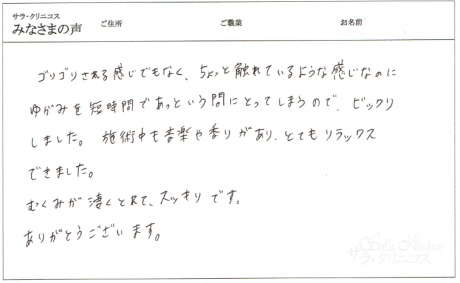 サラ・クリニコス
みなさまの声 ご住所 ご職業 お名前
ゴリゴリされる感じでもなく、ちょっと触れているような感じなのに
ゆがみを短時間であっという間にとってしまうので、ビックリ
しました。施術中も音楽や香りがあり、とてもリラックス
できました。
むくみが凄くとれて、スッキリです。
ありがとうございます。
サラ・クリニコス